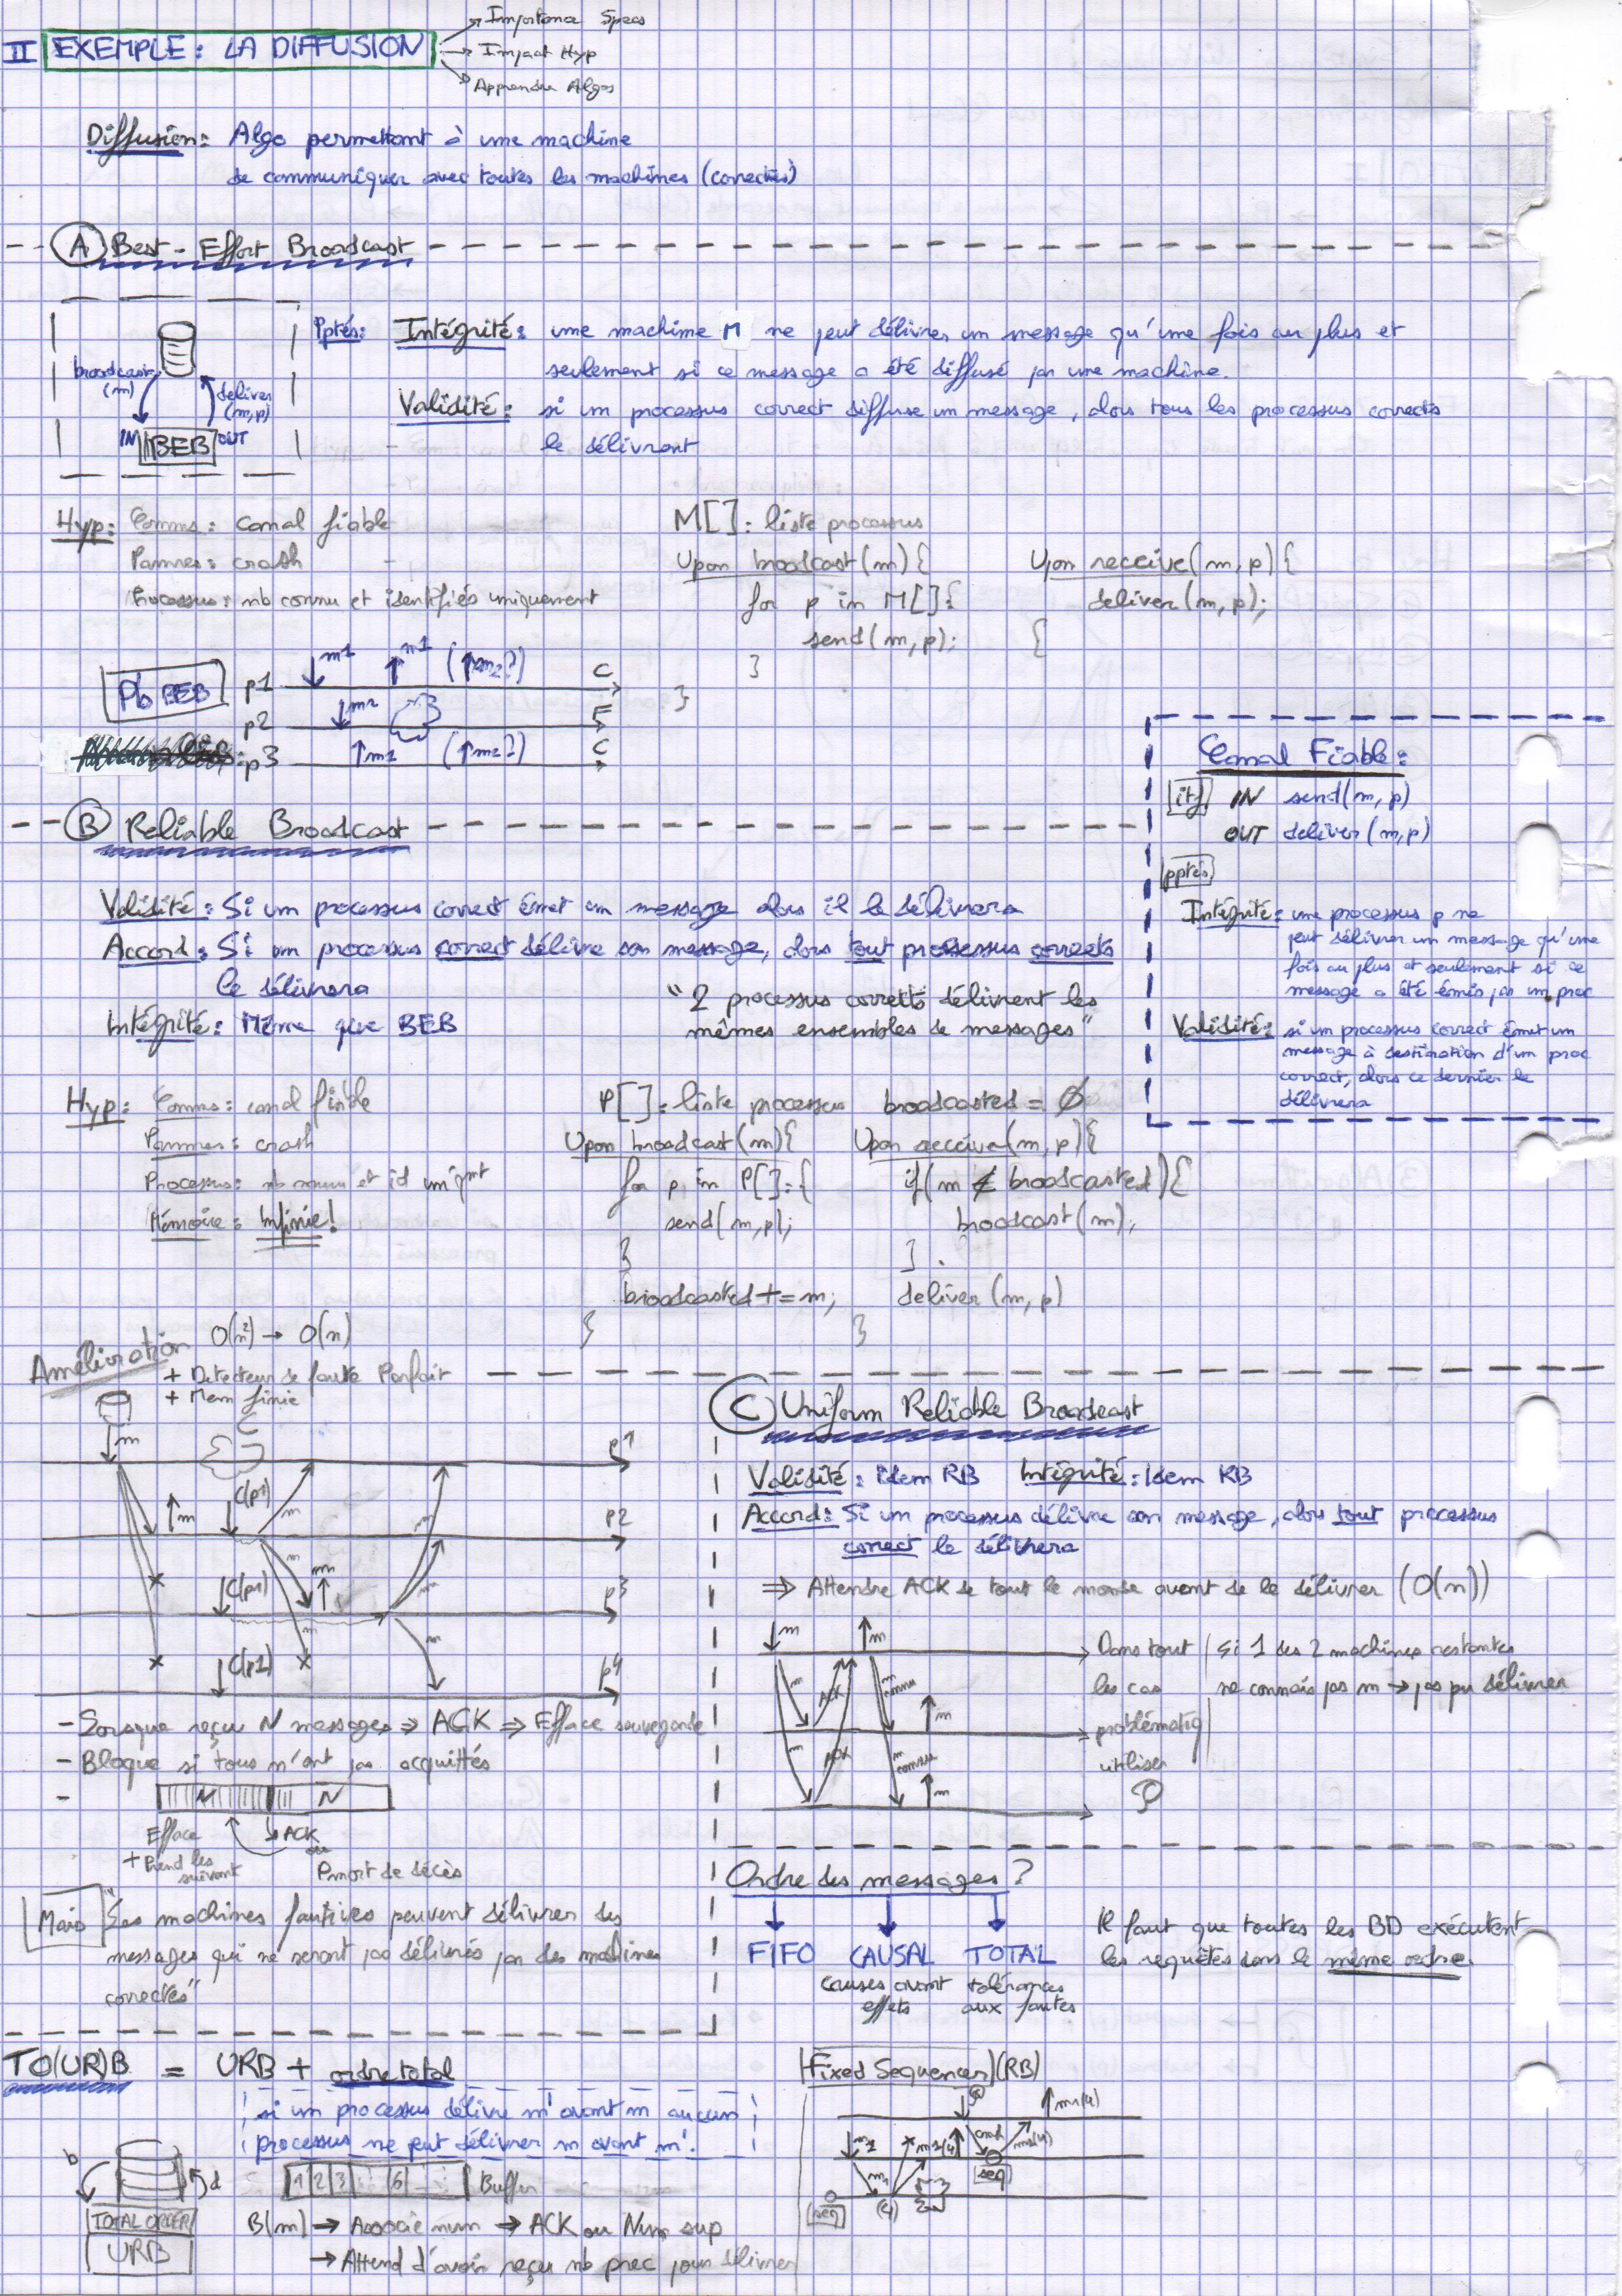 II EXEMPLE: LA DIFFUSION
→ Importance Specs
→ Impact Hyp
→ Apprendre Algos
Diffusion: Algo permettant à une machine
de communiquer avec toutes les machines (correctes)
A Best-Effort Broadcast
broadcast (m)
deliver (m,p)
IN BEB OUT
Pptés: Intégrité: une machine M ne peut délivrer un message qu'une fois au plus et
seulement si ce message a été diffusé par une machine.
Validité: si un processus correct diffuse un message, alors tous les processus corrects
le délivrent
Hyp: Comms: canal fiable
Pannes: crash
Processus: nb connu et identifiés uniquement
M[]: liste processus
Upon broadcast(m){
for p in M[]:{
send(m,p);
}
}
Upon receive(m,p){
deliver(m,p);
{
Pb BEB
p1 ↓m1 ↑m1 (↑m2?) C
p2 ↓m2 F
p3 ↑m1 (↑m2?) C
Canal Fiable:
itf IN send(m,p)
OUT deliver(m,p)
pptés
Intégrité: une processus p ne
peut délivrer un message qu'une
fois au plus et seulement si ce
message a été émis par un proc
Validité: si un processus correct émet un
message à destination d'un proc
correct, alors ce dernier le
délivrera
B Reliable Broadcast
Validité: Si un processus correct émet un message alors il le délivrera
Accord: Si un processus correct délivre son message, alors tout processus corrects
le délivrera
Intégrité: Même que BEB
"2 processus corrects délivrent les
mêmes ensembles de messages"
Hyp: Comms: canal fiable
Pannes: crash
Processus: nb connu et id uniqnt
Mémoire: Infinie!
P[]: liste processus broadcasted = Ø
Upon broadcast(m){
for p in P[]:{
send(m,p);
}
broadcasted += m;
}
Upon receive(m,p){
if(m ∉ broadcasted){
broadcast(m);
}
deliver(m,p)
}
Amélioration O(n²) → O(n)
+ Detecteur de faute Parfait
+ Mem finie
m C p1
m C(p1) m p2
C(p1) m m p3
C(p1) m m p4
- Lorsque reçu N messages ⇒ ACK ⇒ Efface sauvegarde
- Bloque si tous n'ont pas acquittés
- N N
Efface
+ Prend les
suivant
ACK
ou
Pmort de décès
Mais "Les machines fautives peuvent délivrer des
messages qui ne seront pas délivrés par des machines
correctes"
C Uniform Reliable Broadcast
Validité: idem RB Intégrité: Idem RB
Accord: Si un processus délivre son message, alors tout processus
correct le délivrera
⇒ Attendre ACK de tout le monde avant de le délivrer (O(n))
↓m ↑m
m ACK m connu ↑m
m ACK m connu ↑m
Dans tout
les cas
problématiq
utiliser
Si 1 des 2 machines restantes
ne connais pas m → pas pu délivrer
Ordre des messages?
FIFO CAUSAL TOTAL
causes avant
effets
tolérances
aux fautes
Il faut que toutes les BD exécutent
les requêtes dans le même ordre.
TO(UR)B = URB + ordre total
si un processus délivre m' avant m aucun
processus ne peut délivrer m avant m'.
b d
TOTAL ORDER
URB
1 2 3 6 Buffer
B(m) → Associe num → ACK ou Num sup
→ Attend d'avoir reçu nb prec pour délivrer
Fixed Sequencer (RB)
↑m1(4)
m1 m1(4) m1(4)
seq
m1
seq (4)